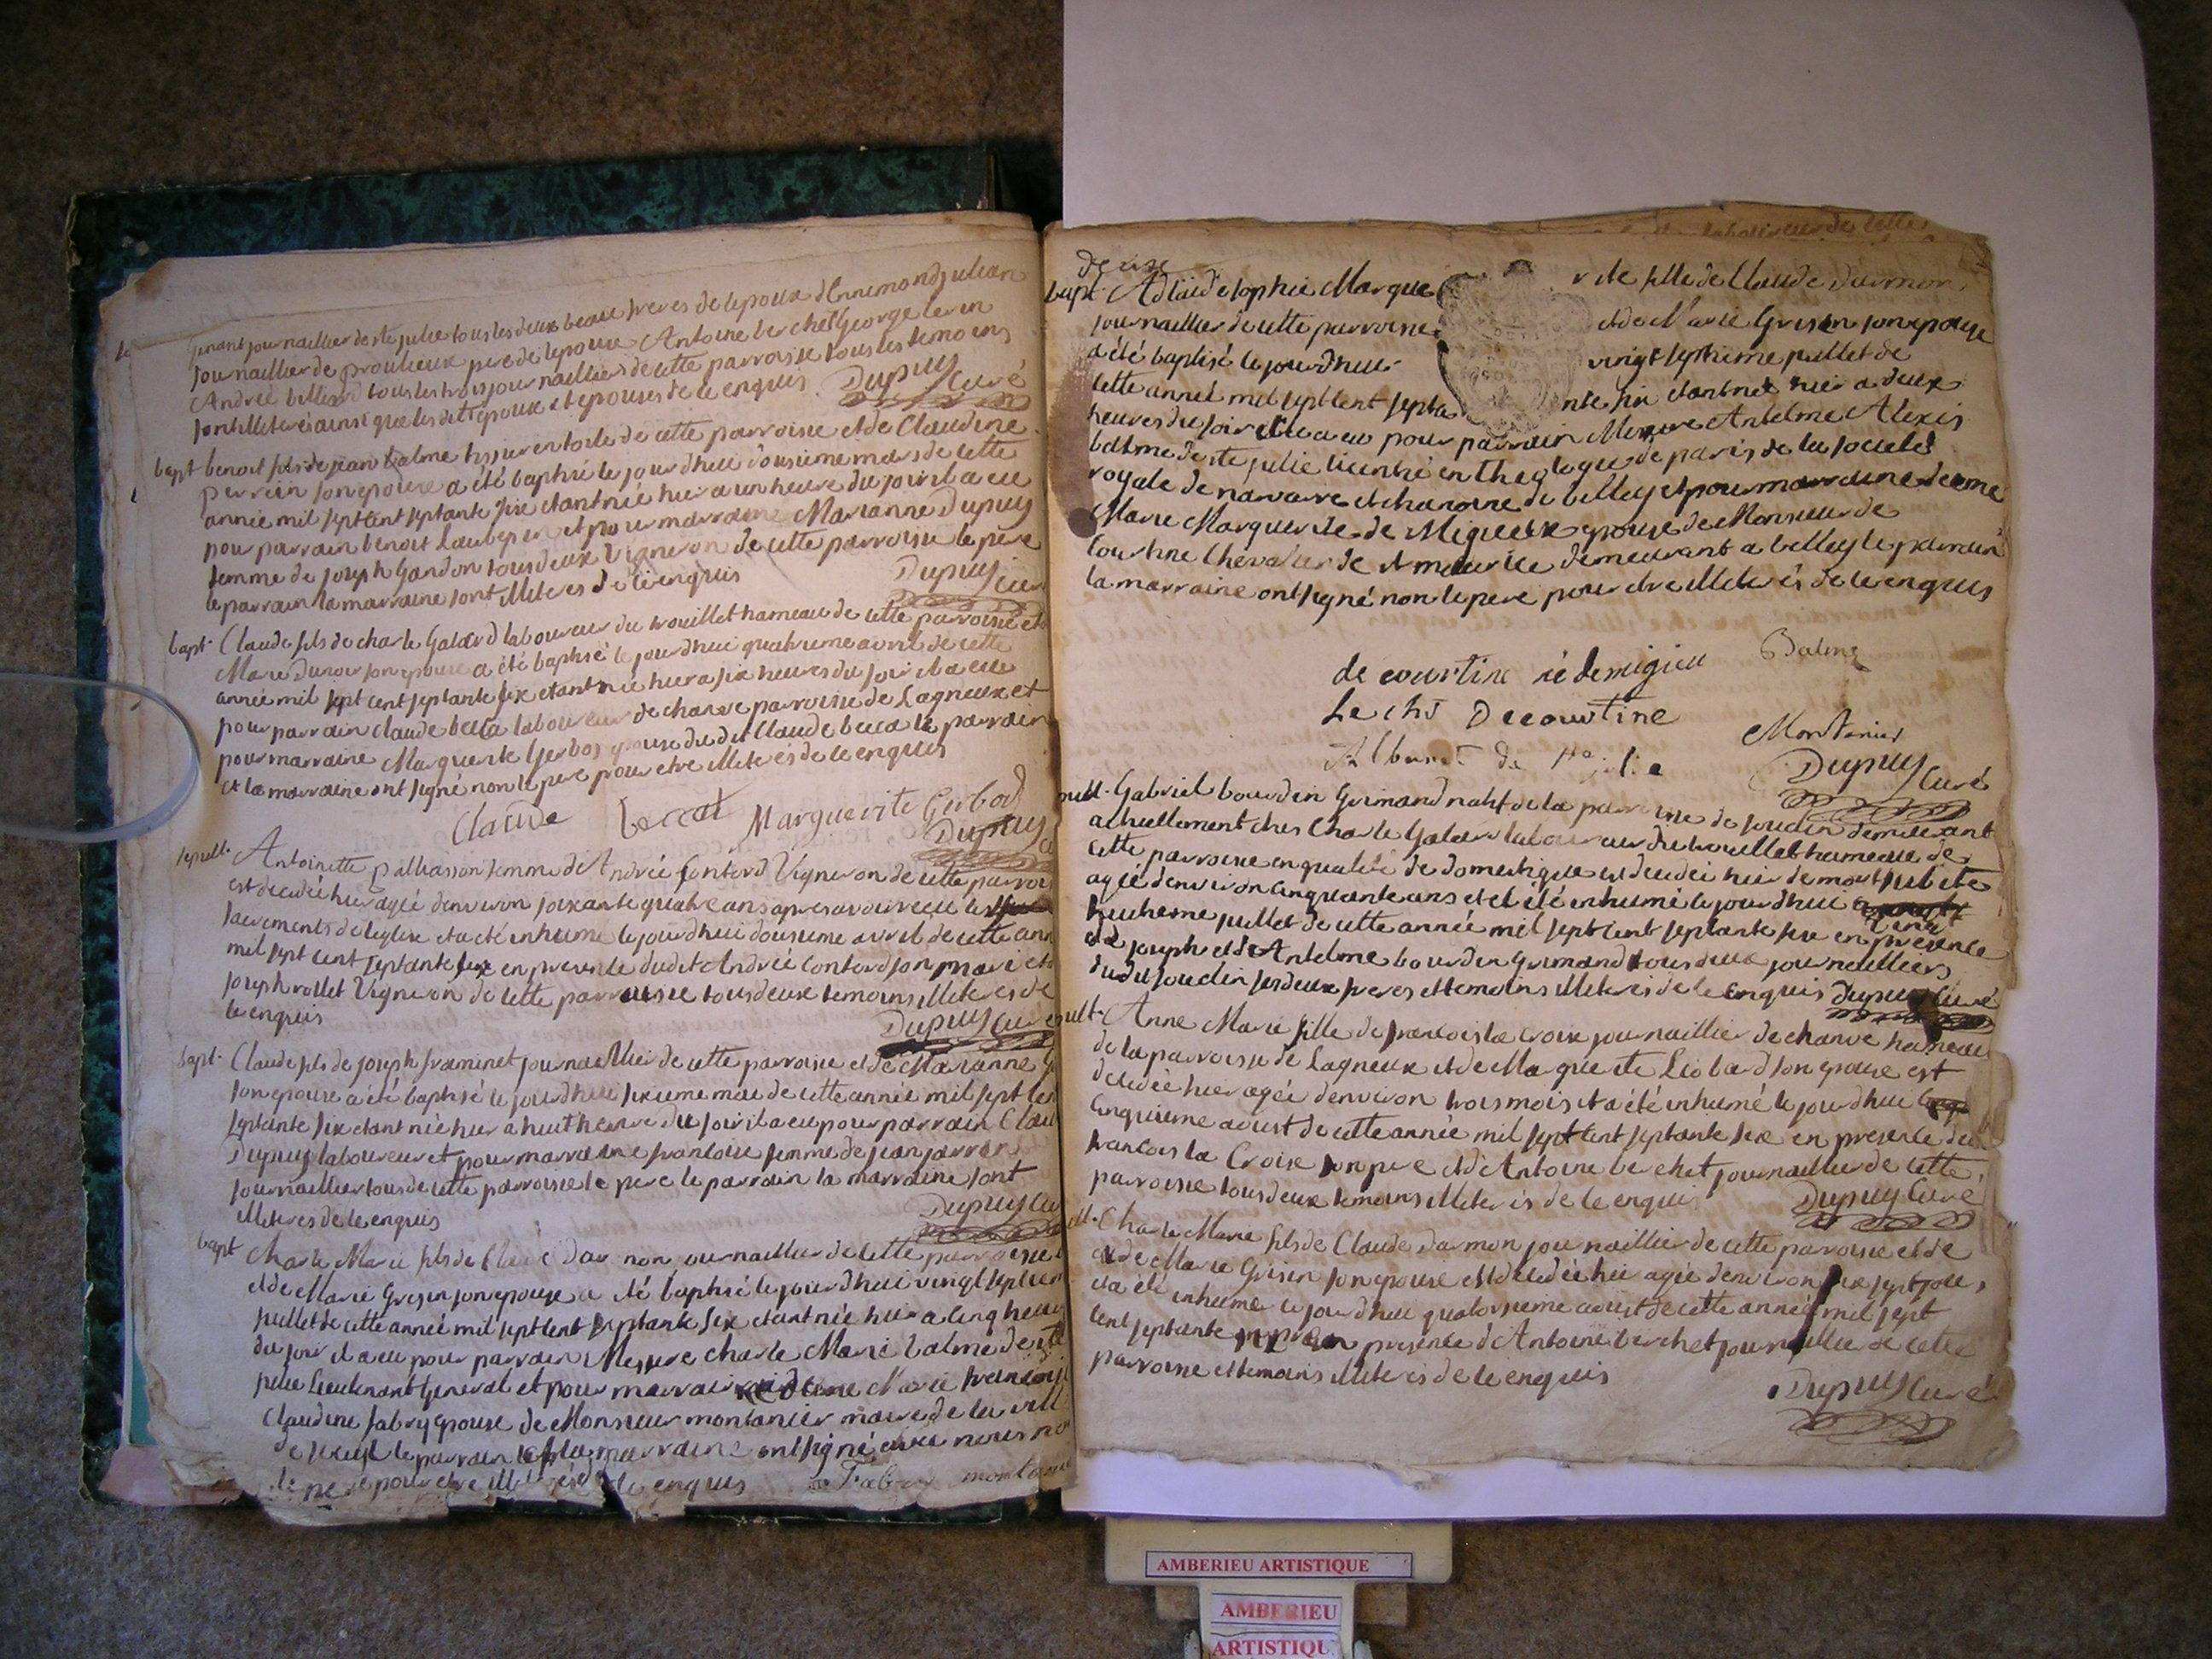 journaillier de ste julie tous les deux beau freres de lepoux d Ennemond julian
journaillier de proulieux pere de lepouse Antoine berchet George
Andreé billiard tous les trois journailliers de cette parroisse tous les temoins
sont illeterés ainsi que les dits epoux et epouses de ce enquis Dupuy Curé
bapt benoit fils de jean balme tissier en toile de cette parroisse et de Claudine
perrin son epouse a été baptisé le jourdhui dousieme mars de cette
année mil sept cent septante six etant née hier a un heure du soir il a eu
pour parrain benoit Laubepin et pour marraine Marianne Dupuy
femme de joseph Gandon tous deux Vigneron de cette parroisse le pere
le parrain la marraine sont illiteres de ce enquis Dupuy Cur
bapt. Claude fils de charle Galard laboureur du trouillet hameau de cette parroisse et
Marie Dunoir son epouse a été baptisé le jourdhui quatrieme avril de cette
année mil sept cent septante six etant née hier a six heures du soir il a eu
pour parrain claude becca laboureur de charve parroisse de Lagneux et
pour marraine Marguerite Gerbos epouse du dit Claude becca le parrain
et la marraine ont signé non le pere pour etre illiterés de ce enquis
Claude beccat Marguerite Gerbod
Dupuy
sepult. Antoinette palliasson femme d Andreé Contord Vigneron de cette parrois
est decedée hier ageé denviron soixante quatre ans apres avoir receu les
sacrements de leglise et a eté inhumé le jourdhui dousieme avril de cette ann
mil sept cent septante six en presence dudit Andreé Contord son mari et
joseph rollet Vigneron de cette parroisse tous deux temoins illiteres de
ce enquis Dupuy Cur
bapt. Claude fils de joseph framinet journaillier de cette parroisse et de Marianne
son epouse a été baptisé le jourdhui sixieme mai de cette année mil sept cen
septante six etant née hier a huit heures du soir il a eu pour parrain Clau
Dupuy laboureur et pour marraine francoise femme de jean
journaillier tous de cette parroisse le pere le parrain la marraine sont
illiteres de ce enquis Dupuy Cu
bapt Charle Marie fils de Claude Darmon journaillier de cette parroisse
et de Marie Grisin son epouse a été baptisé le jourdhui vingt septiem
juillet de cette année mil sept cent septante six etant née hier a cinq heures
du soir il a eu pour parrain Messire charle Marie balme de ste
julie Lieutenant General et pour marraine dame Marie francoise
Claudine fabry epouse de Monsieur montanier maire de la vill
de le parrain et la marraine ont signé avec nous non
le pere pour etre illiterés de ce enquis Fabry montanier
de cise
bapt. Adlaide sophie Margue r ite fille de Claude Darmon
journaillier de cette parroisse et de Marie Grisin son epouse
a été baptisé le jourdhui vingt septieme juillet de
cette année mil sept cent septa nte six etant née hier a deux
heures du soir elle a eu pour parrain Messire Antelme Alexis
balme de ste julie licentié en theologie de paris de la societé
royale de navarre et chanoine de belley et pour marraine dame
Marie Marguerite de Migieux epouse de Monsieur de
Courtine Chevalier de st maurice demeurant a belley le parrain
la marraine ont signé non le pere pour etre illiterés de ce enquis
de courtine né demigieu Balme
Le chr Decourtine
Montanier
Albanet de ste julie
Dupuy Curé
sepult. Gabriel bourdin Grimand natif de la parroisse de soudin demeurant
actuellement ches Charle Galard laboureur du trouillet hameau de
cette parroisse en qualité de domestique est decedé hier de mort subite
ageé denviron cinquante ans et a été inhumé le jourdhui
huitieme juillet de cette année mil sept cent septante six en presence
de joseph et d Antelme bourdin Grimand tous deux journailliers
dudit soudin ses deux freres et temoins illiterés de ce enquis Dupuy Curé
sepult. Anne Marie fille de francois la Croix journaillier de charve hameau
de la parroisse de Lagneux et de Marguerite Liobard son epouse est
decedée hier ageé denviron trois mois et a été inhumé le jourdhui
cinquieme aoust de cette année mil sept cent septante six en presence de
francois la Croix son pere et d'Antoine berchet journaillier de cette
parroisse tous deux temoins illiterés de ce enquis Dupuy Curé
sepult. Charle Marie fils de Claude Darmon journaillier de cette parroisse et de
et de Marie Grisin son epouse est decedée hier ageé denviron dix sept jours
et a été inhumé le jourdhui quatorsieme aoust de cette année mil sept
cent septante six en presence d'Antoine berchet journaillier de cette
parroisse et temoins illiterés de ce enquis
Dupuy Curé
AMBERIEU ARTISTIQUE
AMBERIEU
ARTISTIQU